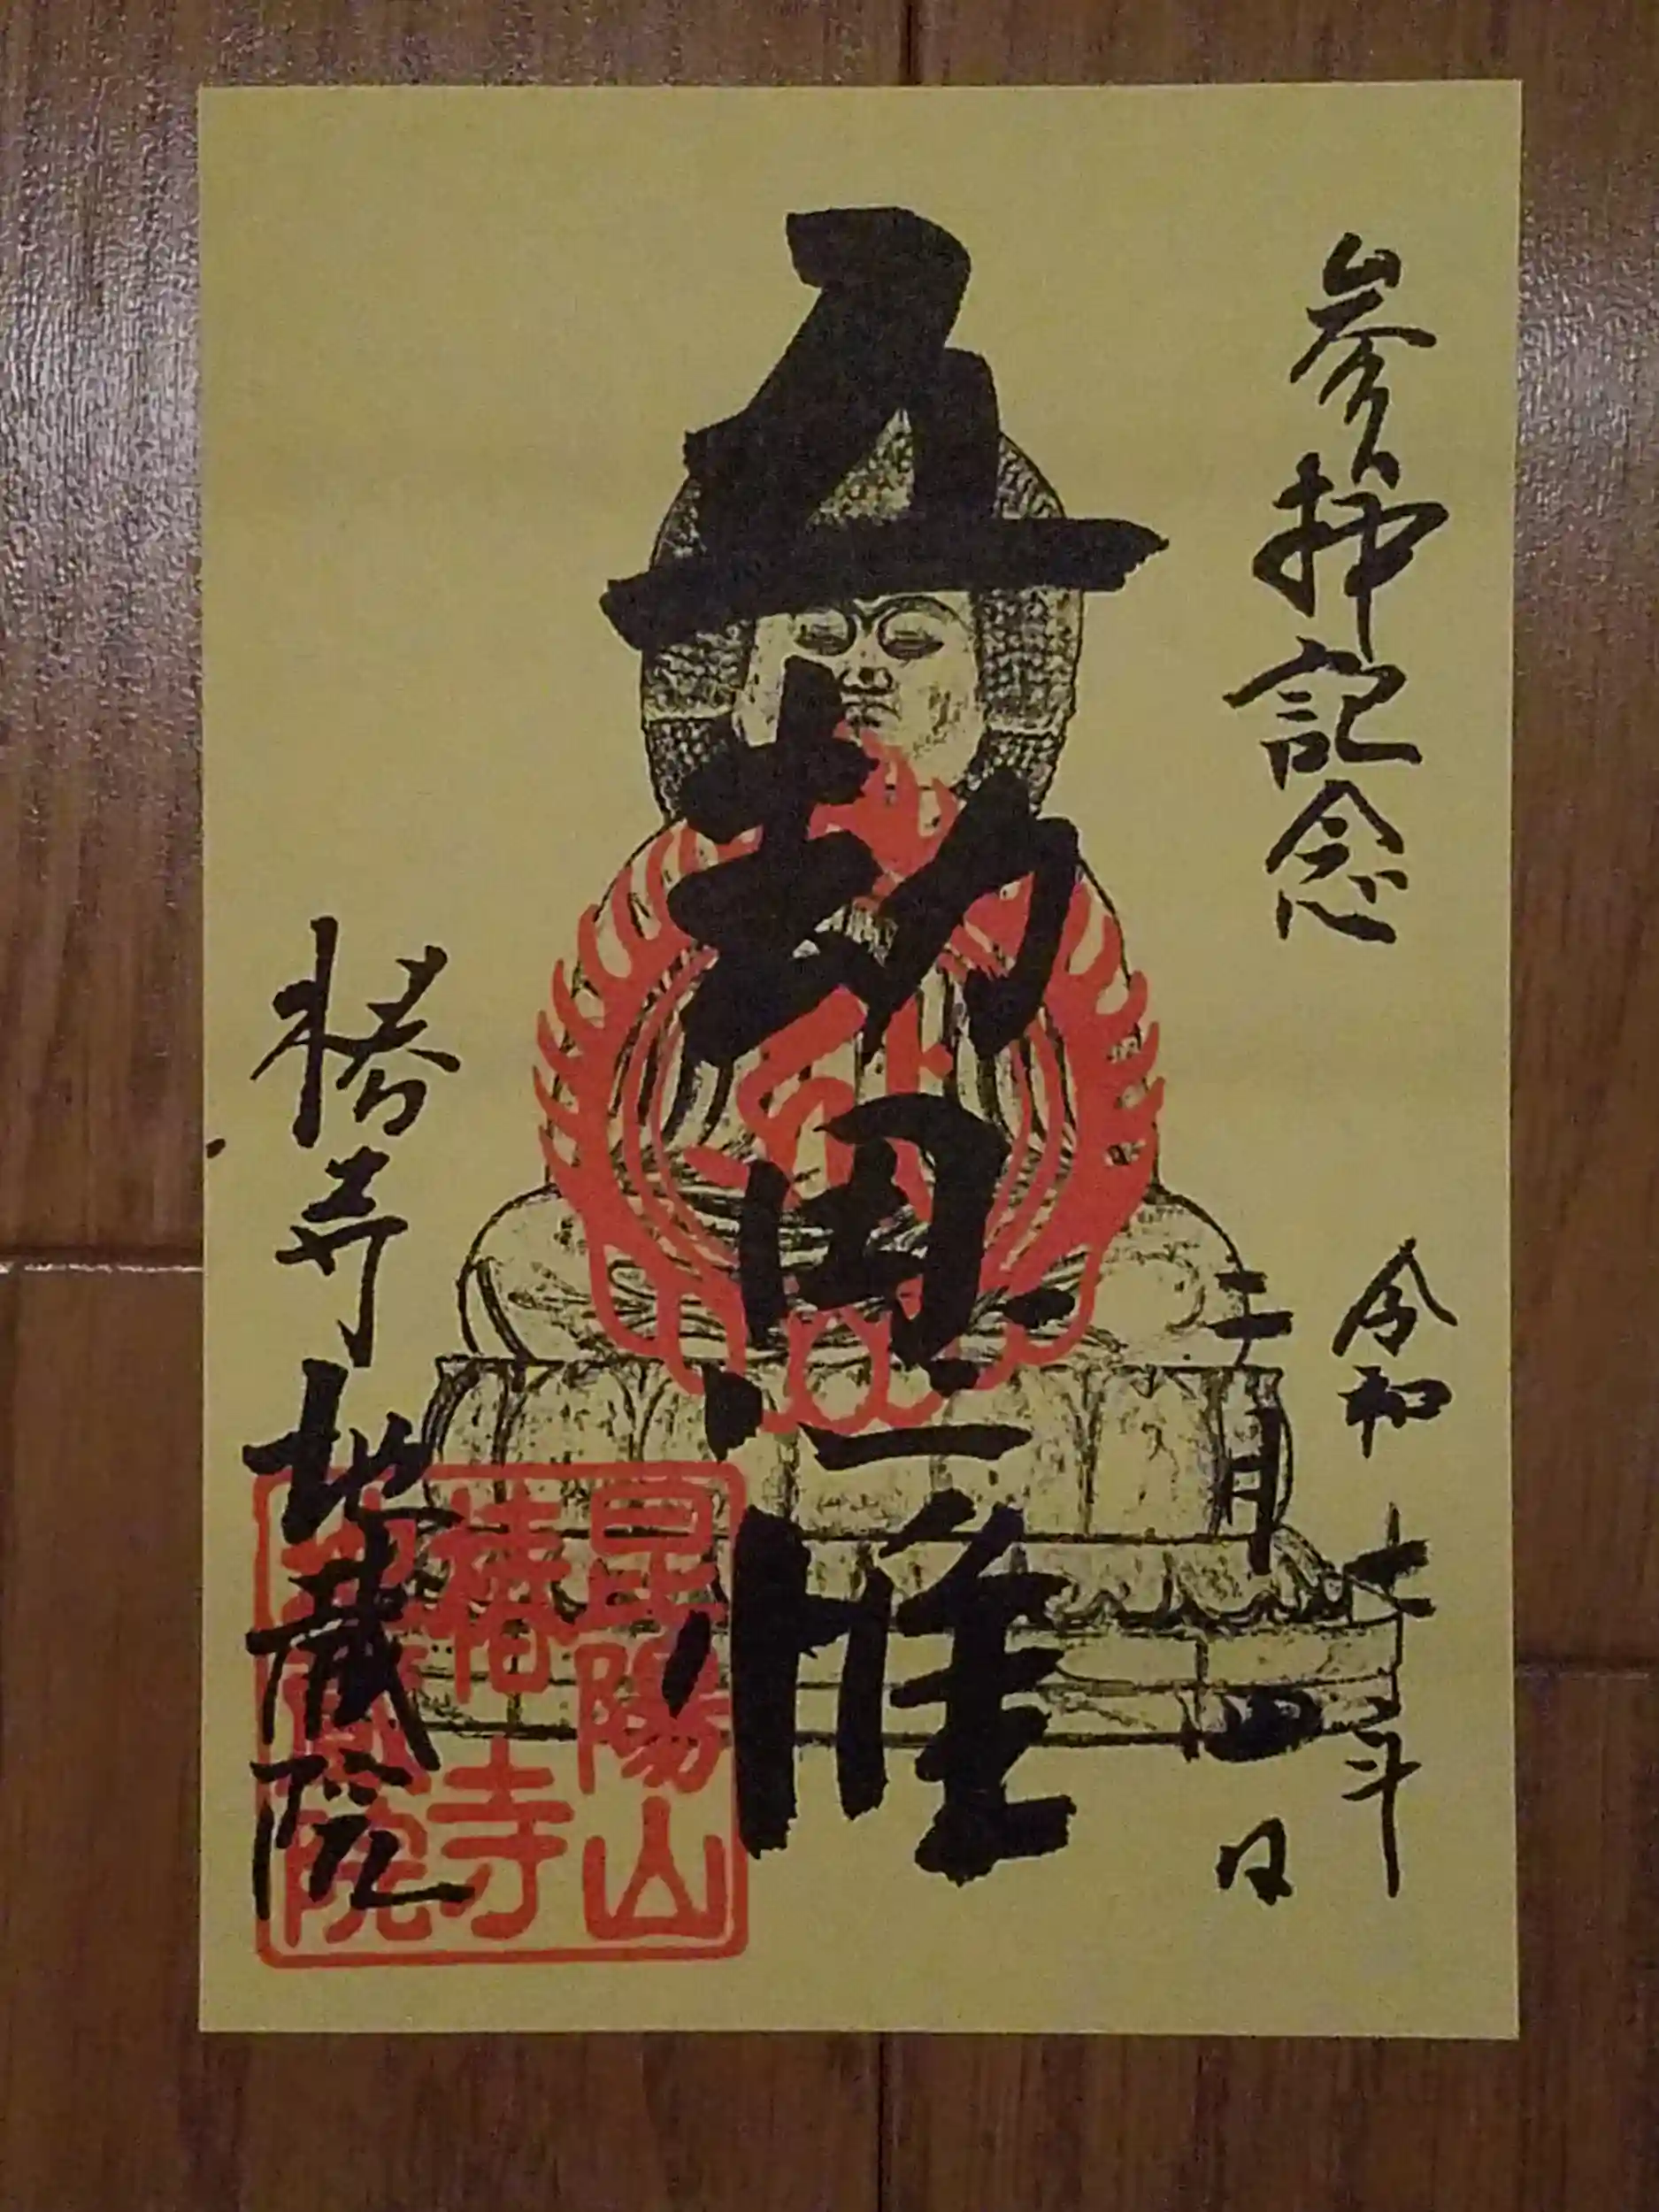 参拝記念
令和七年
二月四日
五劫思惟
椿寺地蔵院
昆陽山
椿寺
地蔵院